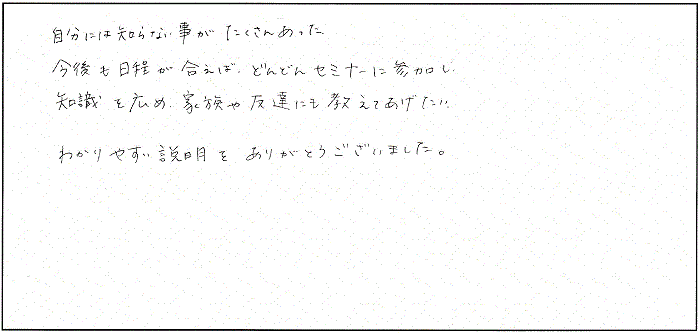 自分には知らない事がたくさんあった
今後も日程が合えば、どんどんセミナーに参加し、
知識を広め、家族や友達にも教えてあげたい
わかりやすい説明をありがとうございました。